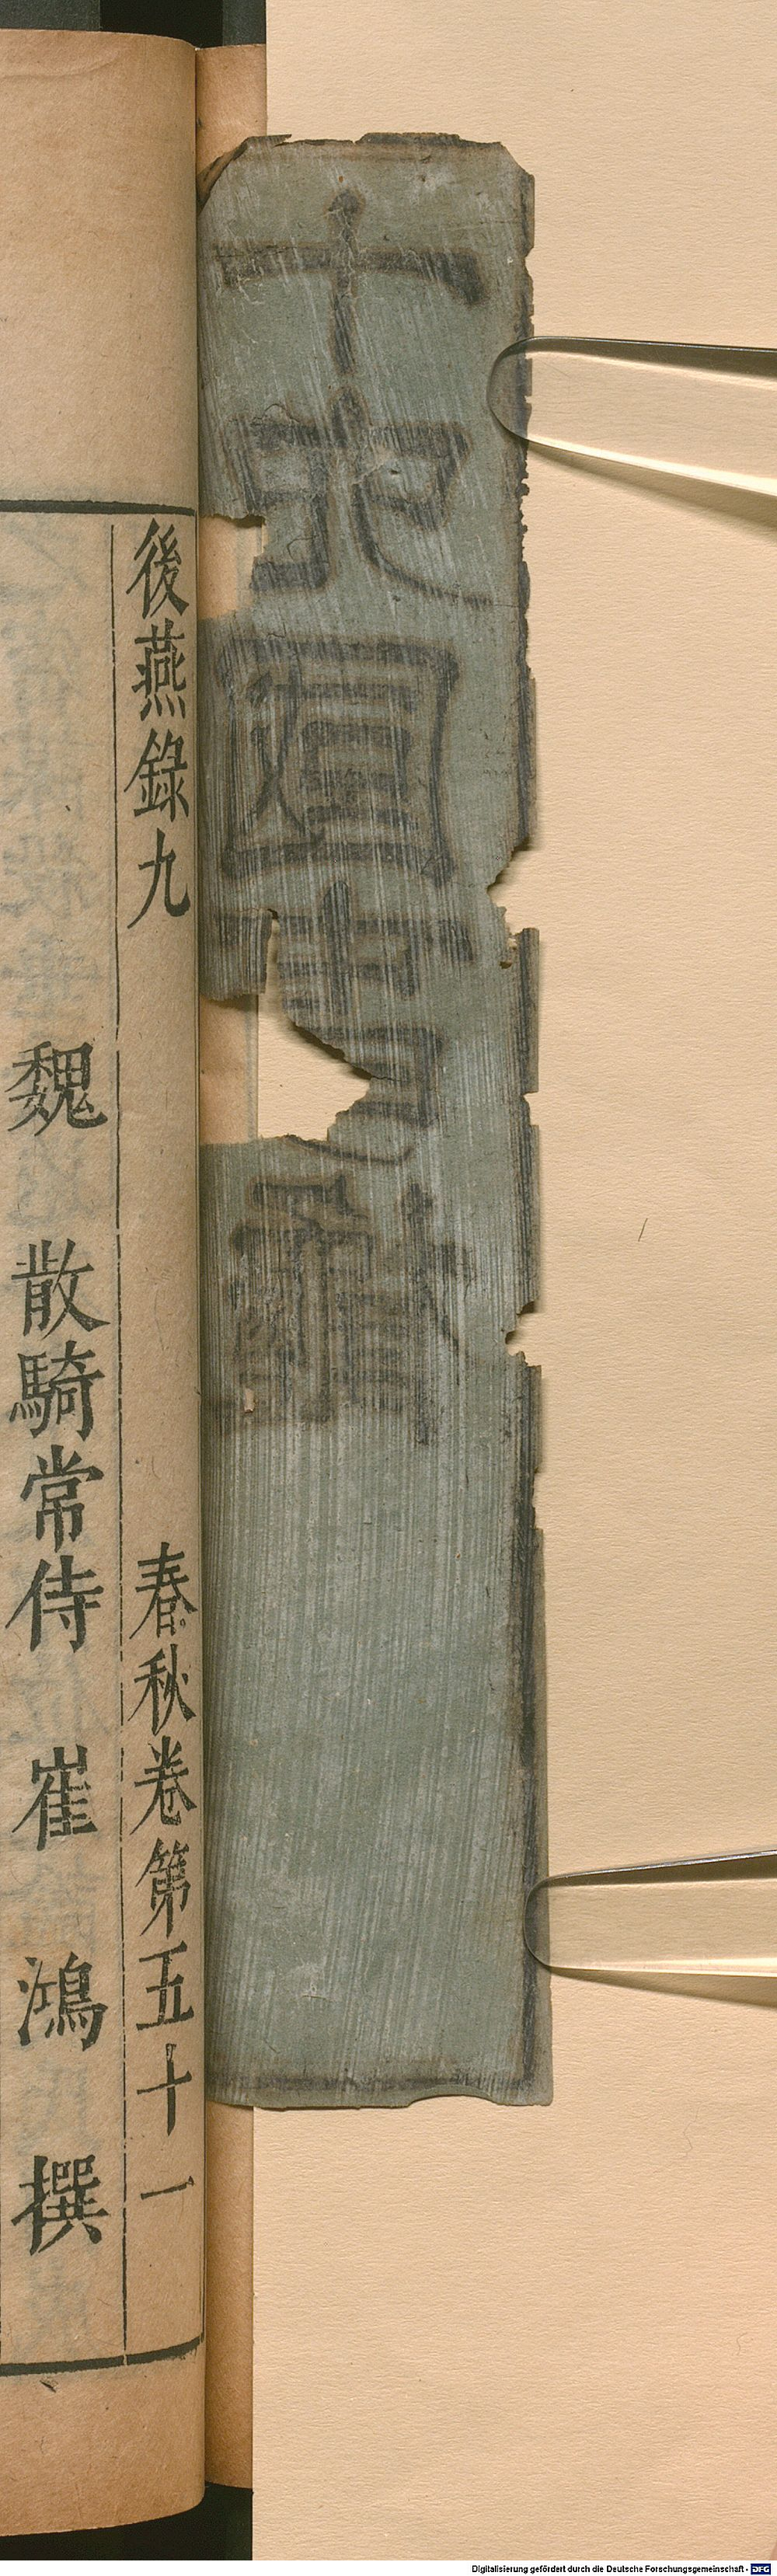 十六國春秋
後燕錄九 春秋卷第五十一
魏 散騎常侍 崔鴻 撰
Digitalisierung gefördert durch die Deutsche Forschungsgemeinschaft - DFG